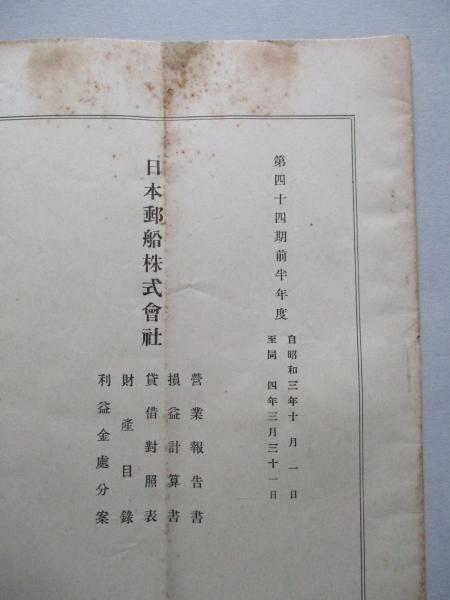 第四十四期前半年度
自昭和三年十月一日
至同四年三月三十一日
日本郵船株式會社
營業報告書
損益計算書
貸借對照表
財產目錄
利益金處分案